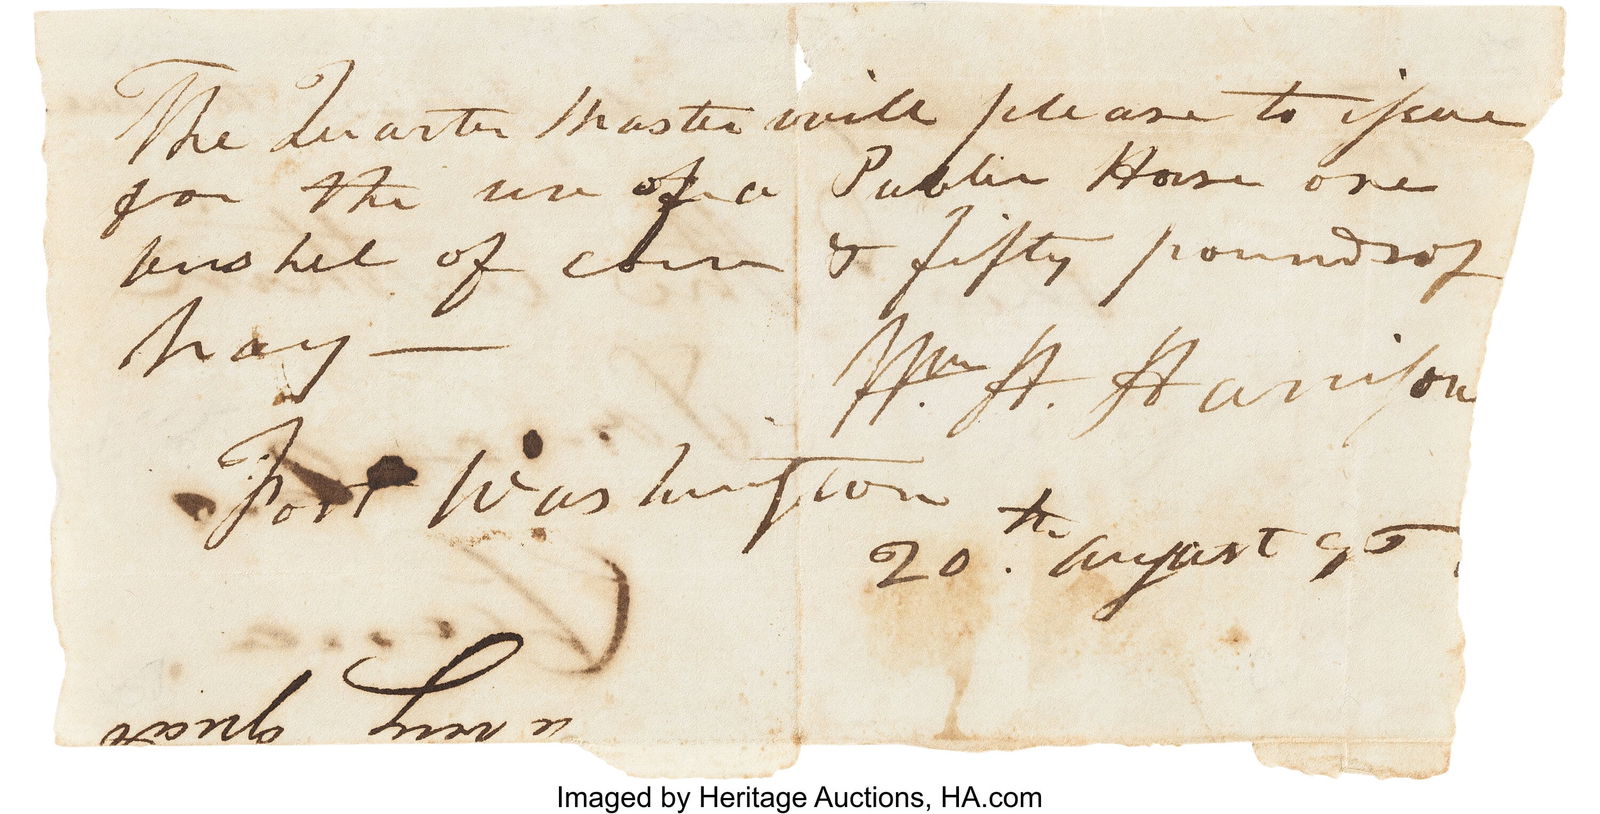 The Quarter Master will please to issue
for the use of a Public Horse one
bushel of corn & fifty pounds of
hay —
Wm. H. Harrison
Fort Washington
20th. August 95
Imaged by Heritage Auctions, HA.com